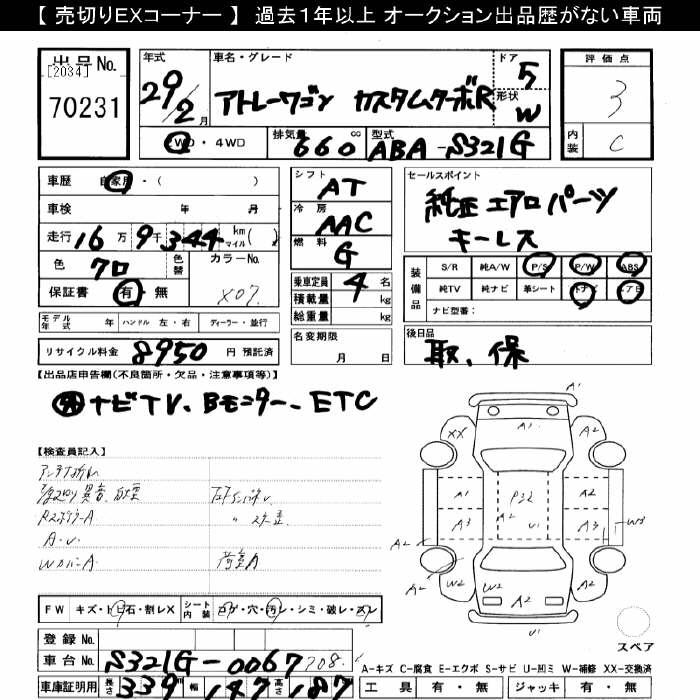 【 売切りEXコーナー 】 過去１年以上 オークション出品歴がない車両
出品No.
[2034]
70231
年式 29/2月
車名・グレード アトレーワゴン カスタムターボR
ドア 5
形状 W
2WD・4WD
排気量 660 cc
型式 ABA-S321G
評価点 3
内装 C
車歴 自家用・( )
車検 年 月
走行 16万9千344 km マイル ( )
色 クロ 色替
カラーNo. X07.
保証書 有・無
シフト AT
冷房 AAC
燃料 G
乗車定員 4 名
積載量 kg
総重量 kg
セールスポイント
純正エアロパーツ
キーレス
装備品
S/R 純A/W P/S P/W ABS
純TV 純ナビ 革シート エアB
ナビ型番：
モデル年式 年 ハンドル 左・右 ディーラー・並行
リサイクル料金 8950 円 預託済
名変期限 月 日
後日品
取、保
【出品店申告欄(不良箇所・欠品・注意事項等)】
ナビTV、Bモニター、ETC
【検査員記入】
A・U
WカバーA
荷室A
FW キズ・トビ石・割レX
シート内装 コゲ・穴・汚レ・シミ・破レ・スレ
登録No.
車台No. S321G-0067708.
車庫証明用 長さ 339 幅 147 高さ 187
A1
A1
XX
A2
A1
P32
A2
A3
A2
U1
A3
W3
A2
A2
W2
W2
A2
W2
U1
スペア
A-キズ C-腐食 E-エクボ S-サビ U-凹ミ W-補修 XX-交換済
工具 有・無 ジャッキ 有・無